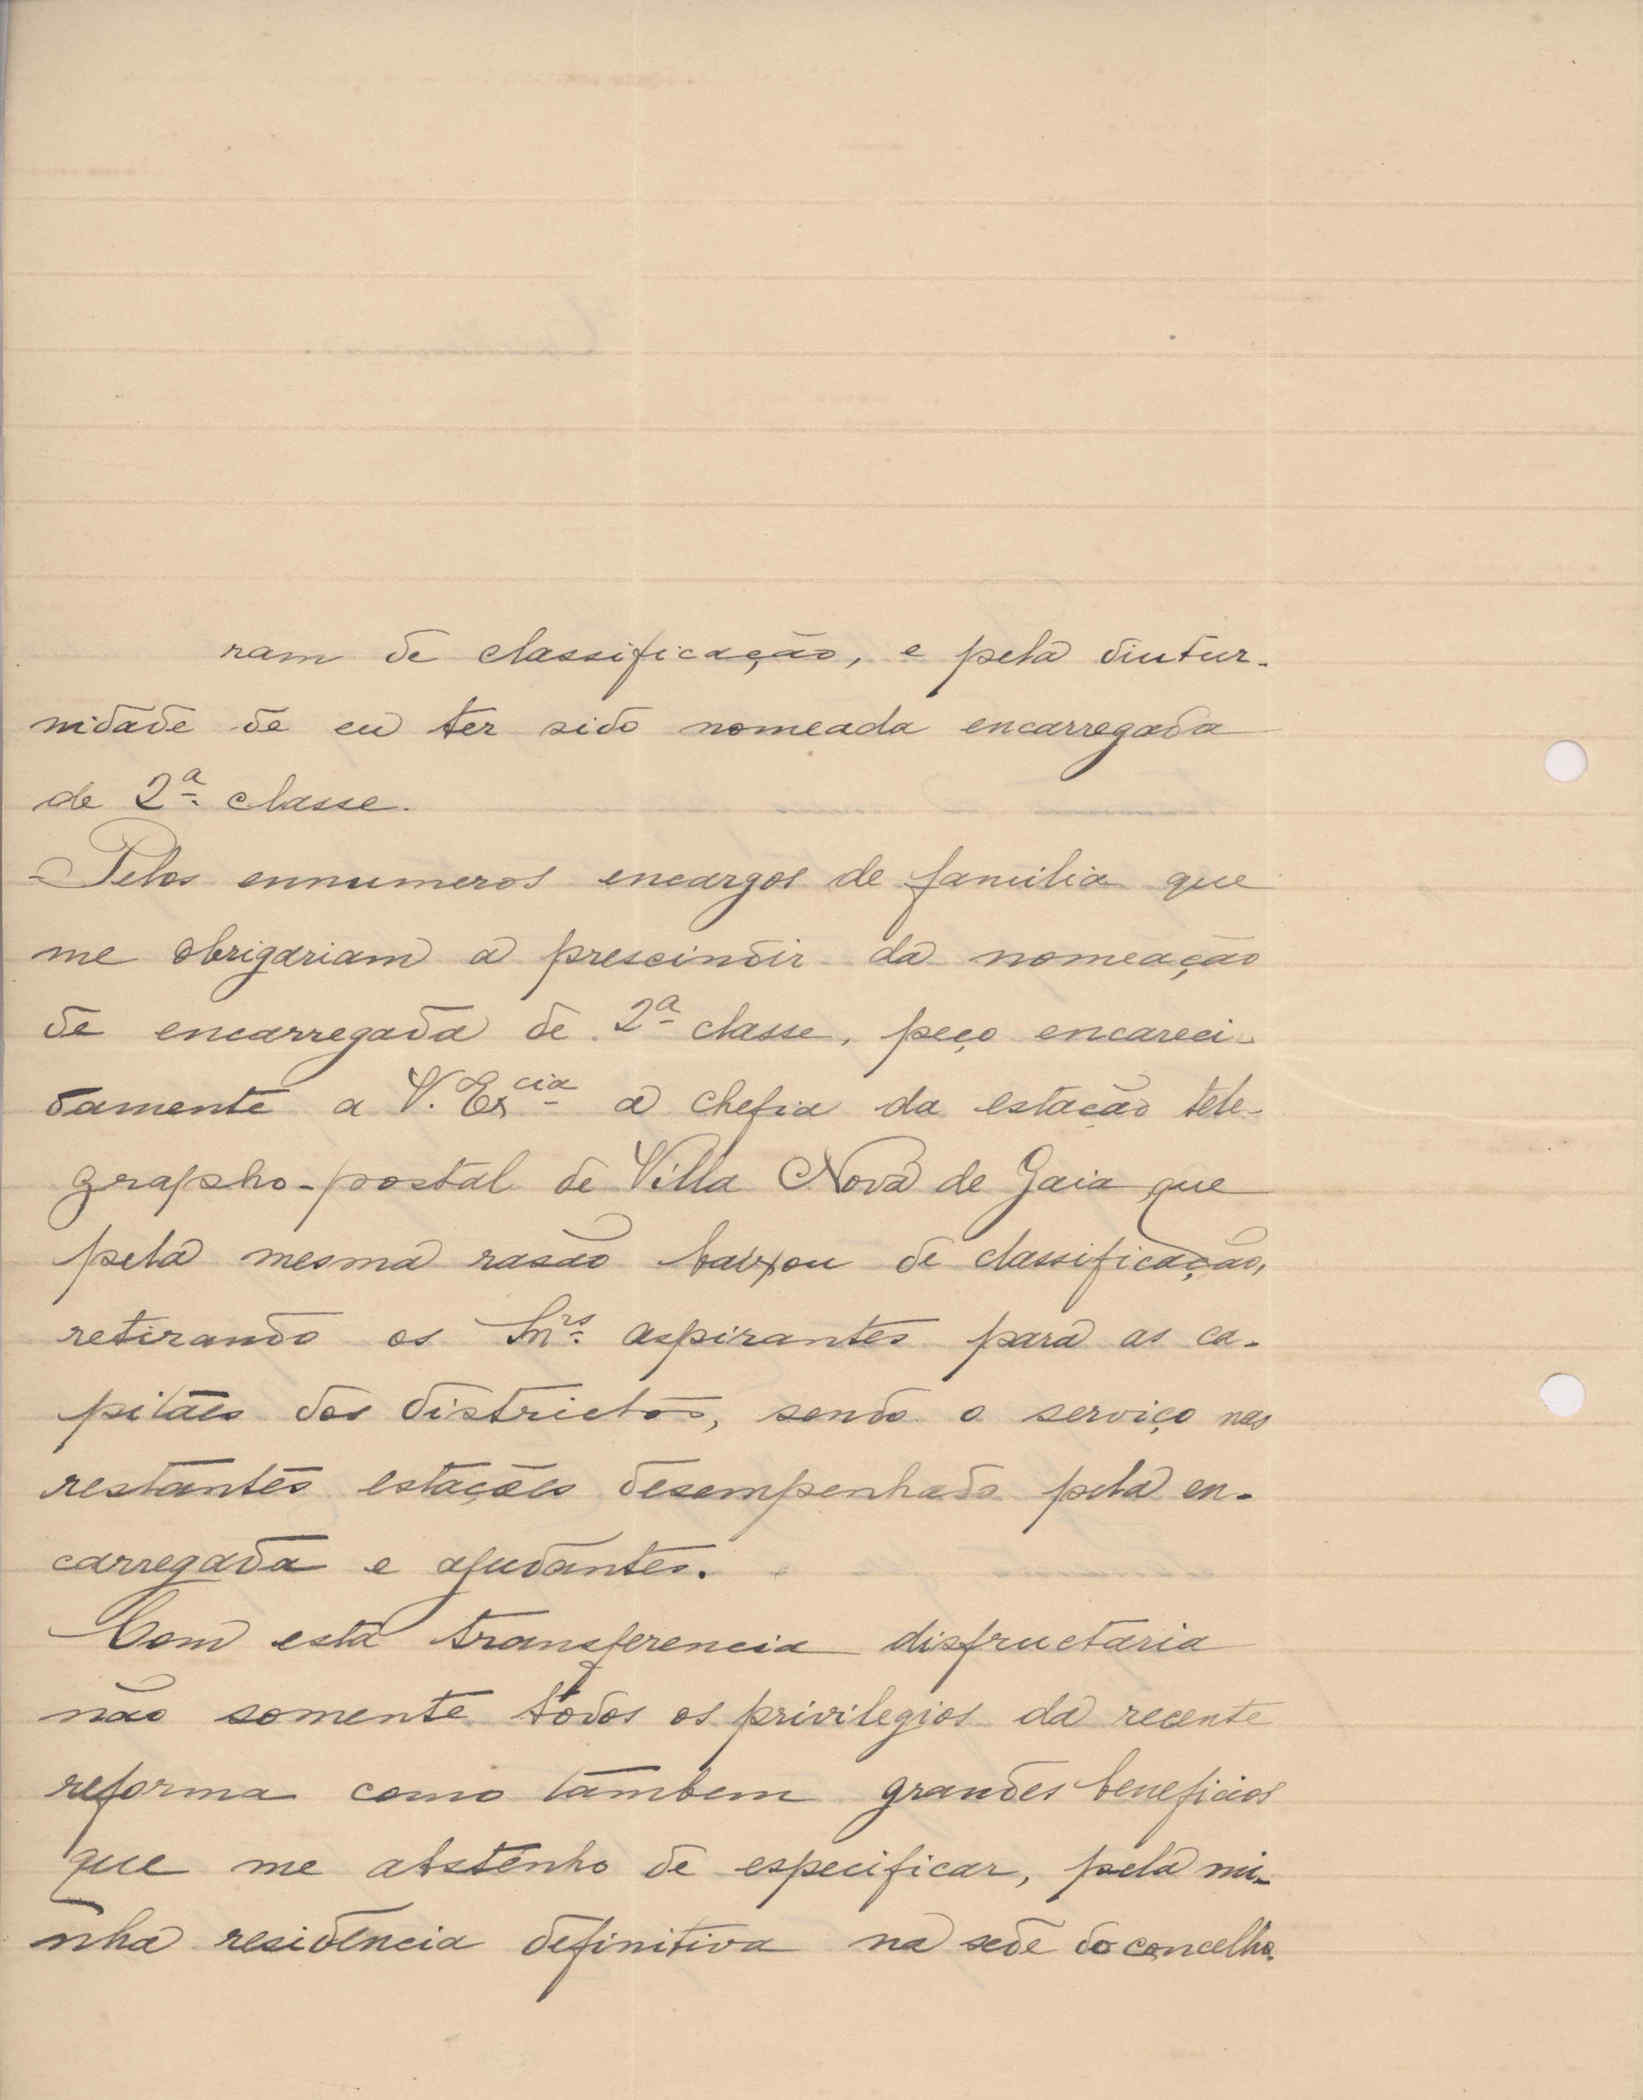 ram de classificação, e pela diutur-
nidade de eu ter sido nomeada encarregada
de 2ª classe.
Pelos ennumeros encargos de familia que
me obrigariam a prescindir da nomeação
de encarregada de 2ª classe, peço encareci-
damente a V. Excia a chefia da estação tele-
grapho-postal de Villa Nova de Gaia que
pela mesma rasão baixou de classificação,
retirando os Snrs aspirantes para as ca-
pitães dos districtos, sendo o serviço nas
restantes estações desempenhado pela en-
carregada e ajudantes.
Com esta transferencia disfructaria
não somente todos os privilegios da recente
reforma como tambem grandes beneficios
que me abstenho de especificar, pela mi-
nha residência definitiva na sede do concelho.